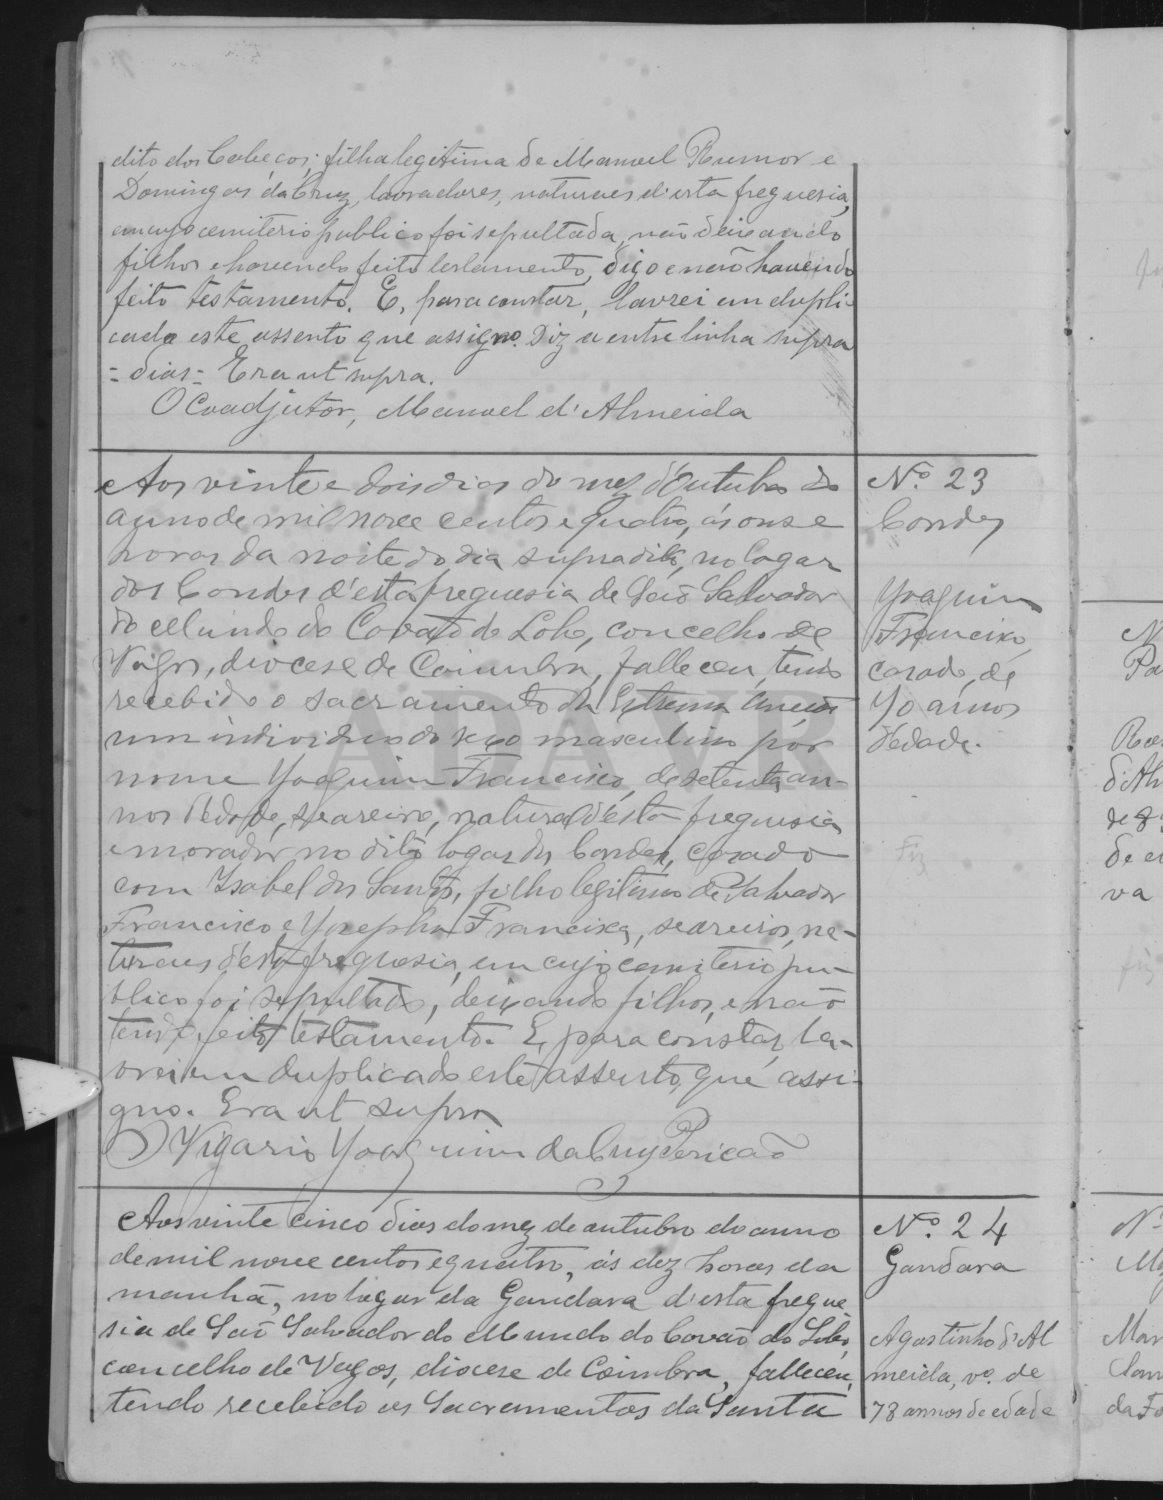 dito dos Cabeços; filha legitima de Manuel Rumor e
Domingas da Cruz, lavradores, naturaes d'esta freguesia,
em cujo cemiterio publico foi sepultada, não deixando
filhos e havendo feito testamento, digo e não havendo
feito testamento. E, para constar, lavrei em dupli-
cado este assento que assigno. Diz a entre linha supra
= dias = Era ut supra.
O Coadjutor, Manuel d'Almeida
Aos vinte e dois dias do mez d'Outubro do
anno de mil nove centos e quatro, ás onse
horas da noite do dia supradito, no logar
dos Condes d'esta freguesia de São Salvador
do Mundo do Covão do Lobo, concelho de
Vagos, diocese de Coimbra, falleceu, tendo
recebido o sacramento da Extrema Uncção
um individuo do sexo masculino por
nome Joaquim Francisco, de setenta an-
nos d'edade, seareiro, natural d'esta freguesia
e morador no dito logar dos Condes, casado
com Isabel dos Santos, filho legitimo de Salvador
Francisco e Josepha Francisca, seareiros, na-
turaes d'esta freguesia, em cujo cemiterio pu-
blico foi sepultado, deixando filhos, e não
tendo feito testamento. E, para constar, la-
vrei em duplicado este assento, que assi-
gno. Era ut supra
O Vigario Joaquim da Cruz Pericão
Aos vinte cinco dias do mez de outubro do anno
de mil nove centos e quatro, ás dez horas da
manhã, no logar da Gandara d'esta fregue-
sia de São Salvador do Mundo do Covão do Lobo,
concelho de Vagos, diocese de Coimbra, falleceu,
tendo recebido os Sacramentos da Santa
Nº 23
Condes
Joaquim
Francisco,
casado, de
70 annos
d'edade.
Fiz
Nº 24
Gandara
Agostinho d'Al
meida, vº. de
78 annos de edade
ADAVR